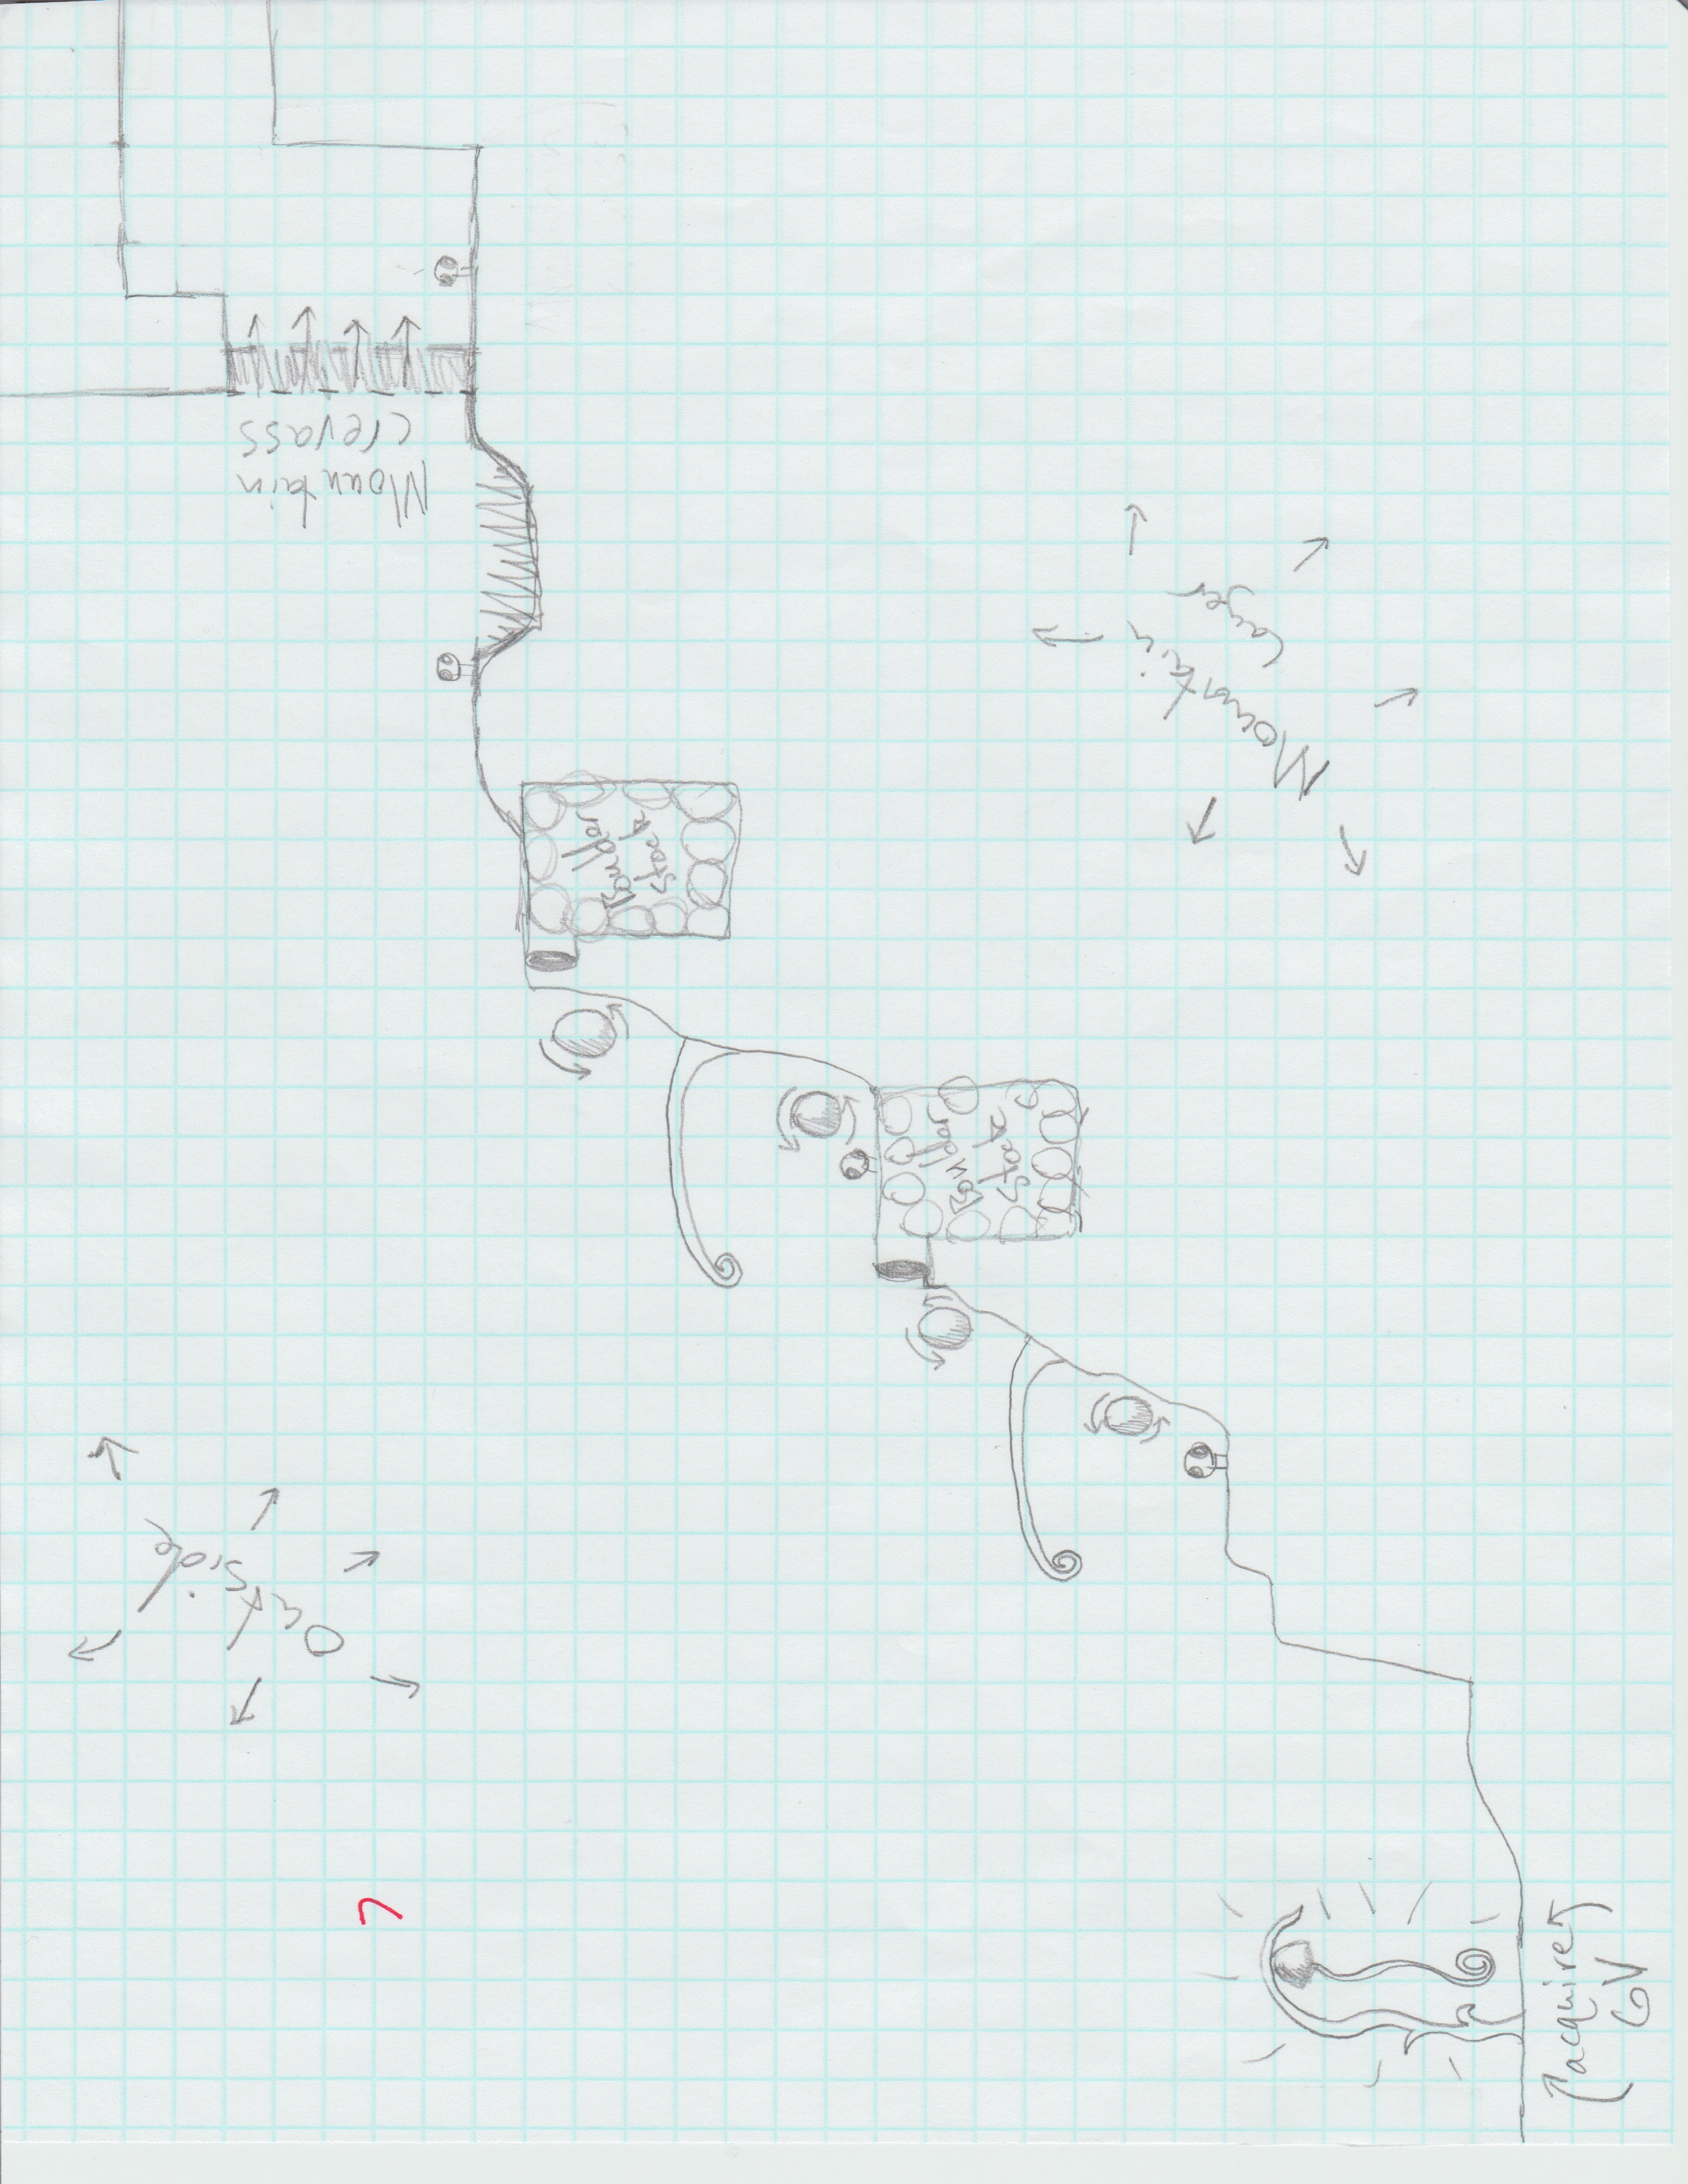 Mountain
crevass
Mountain
Layer
Boulder
stock
Boulder
stock
Outside
7
[acquire]
GV